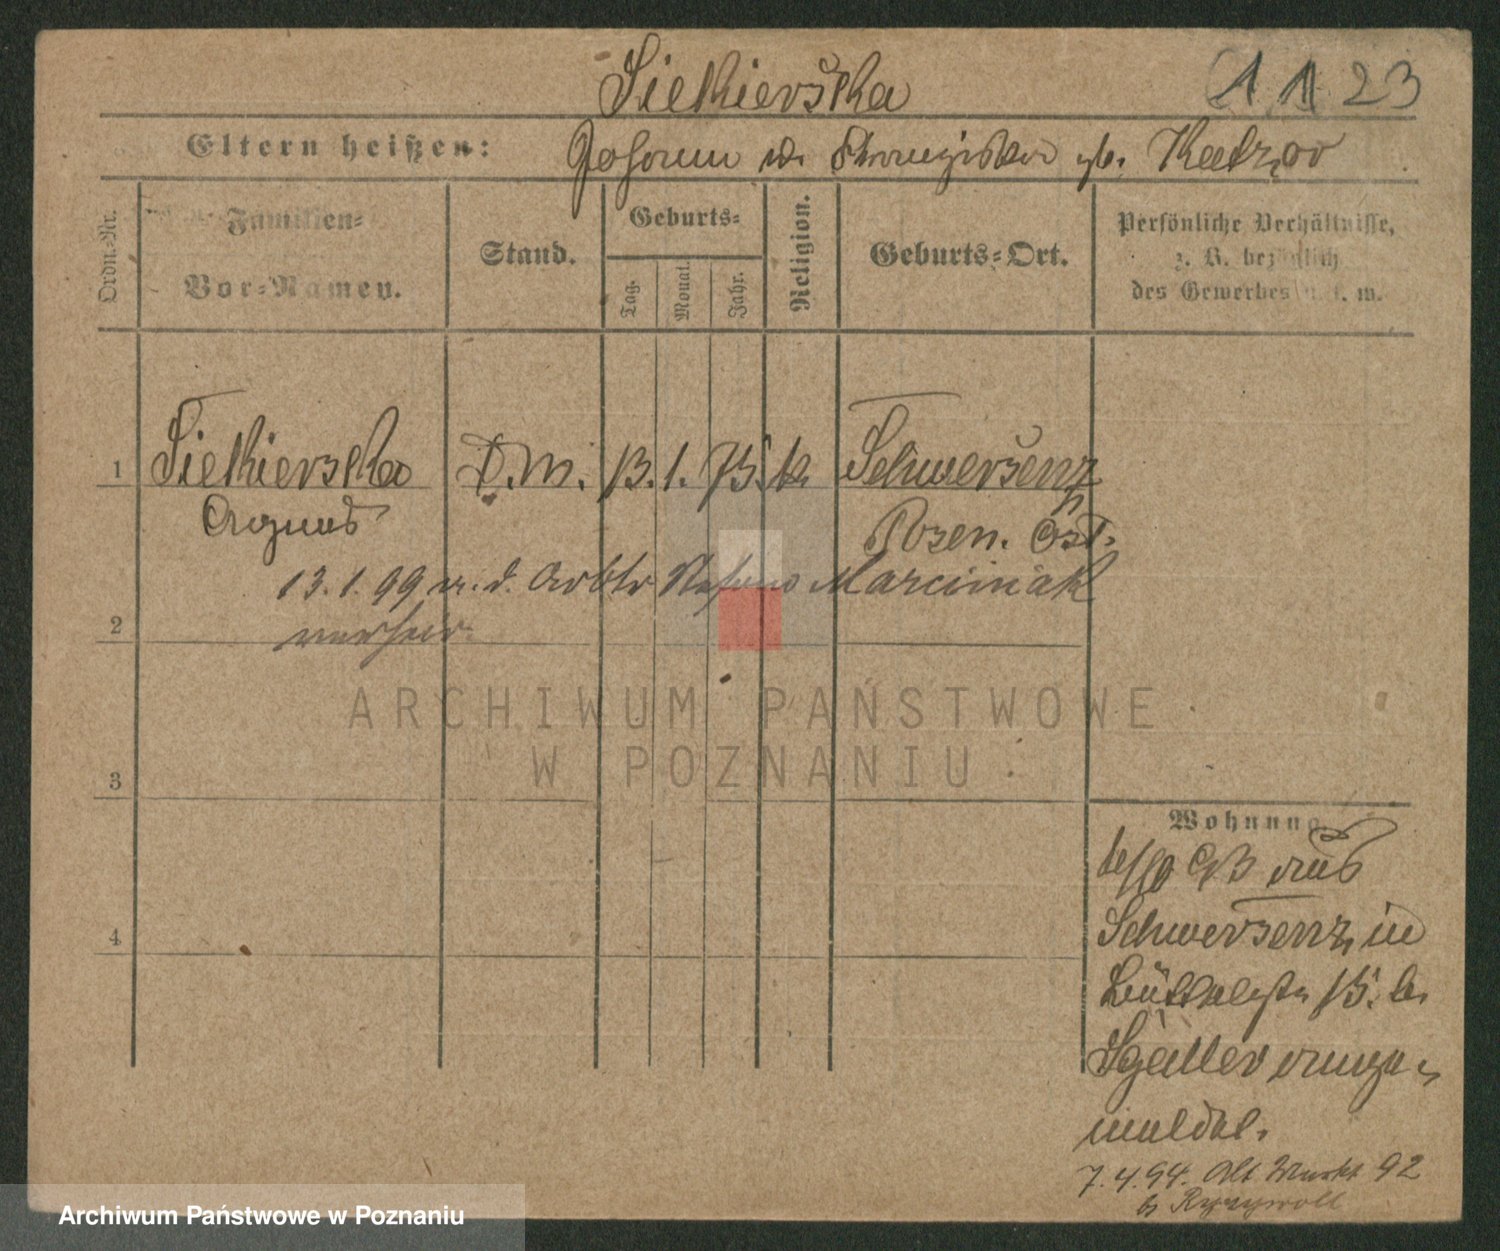 Siekierska
1123
Eltern heißen:
Johann u. Franziska gb. Kaczor
Ordn.-Nr.
Familien-
Vor-Namen.
Stand.
Geburts-
Tag.
Monat.
Jahr.
Religion.
Geburts-Ort.
Persönliche Verhältnisse,
z. B. bezüglich
des Gewerbes u. s. w.
1 Siekierska D.M. 13. 1. 75. k. Schwersenz
Agnes
Posen. Ost.
13.1.99 m. d. Arbtr Marciniak
2 verheir.
3
4
Wohnung
aus
Schwersenz, in
15. b.
ange-
meldet.
7.4.94. Alt Markt 92
b Ryzywoll
ARCHIWUM PAŃSTWOWE
W POZNANIU
Archiwum Państwowe w Poznaniu